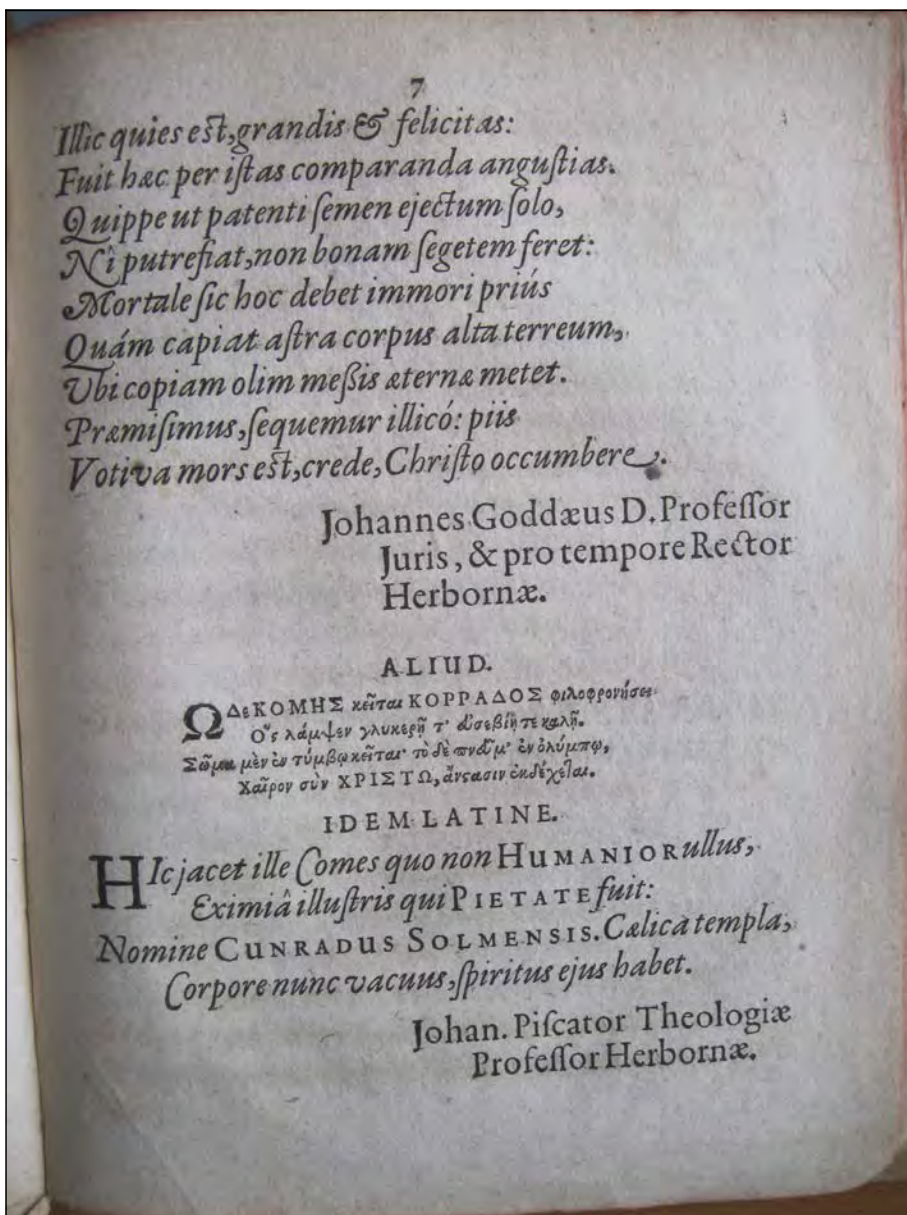 7
Illic quies est, grandis & felicitas:
Fuit hæc per istas comparanda angustias.
Quippe ut patenti semen ejectum solo,
Nî putrefiat, non bonam segetem feret:
Mortale sic hoc debet immori priús
Quám capiat astra corpus alta terreum,
Ubi copiam olim messis æternæ metet.
Præmisimus, sequemur illicó: piis
Votiva mors est, crede, Christo occumbere.
Johannes Goddæus D. Professor
Juris, & pro tempore Rector
Herbornæ.
ALIUD.
Ωδε ΚΟΜΗΣ κεῖται ΚΟΡΡΑΔΟΣ φιλοφρονήσει
Ὃς λάμψεν γλυκερῇ τ' εὐσεβίῃ τε καλῇ.
Σῶμα μὲν ἐν τύμβῳ κεῖται· τὸ δὲ πνεῦμ' ἐν ὀλύμπῳ,
Χαῖρον σὺν ΧΡΙΣΤΩ, ἄνστασιν ἐκδέχεται.
IDEM LATINE.
HIc jacet ille Comes quo non HUMANIOR ullus,
Eximiâ illustris qui PIETATE fuit:
Nomine CUNRADUS SOLMENSIS. Cælica templa,
Corpore nunc vacuus, spiritus ejus habet.
Johan. Piscator Theologiæ
Professor Herbornæ.